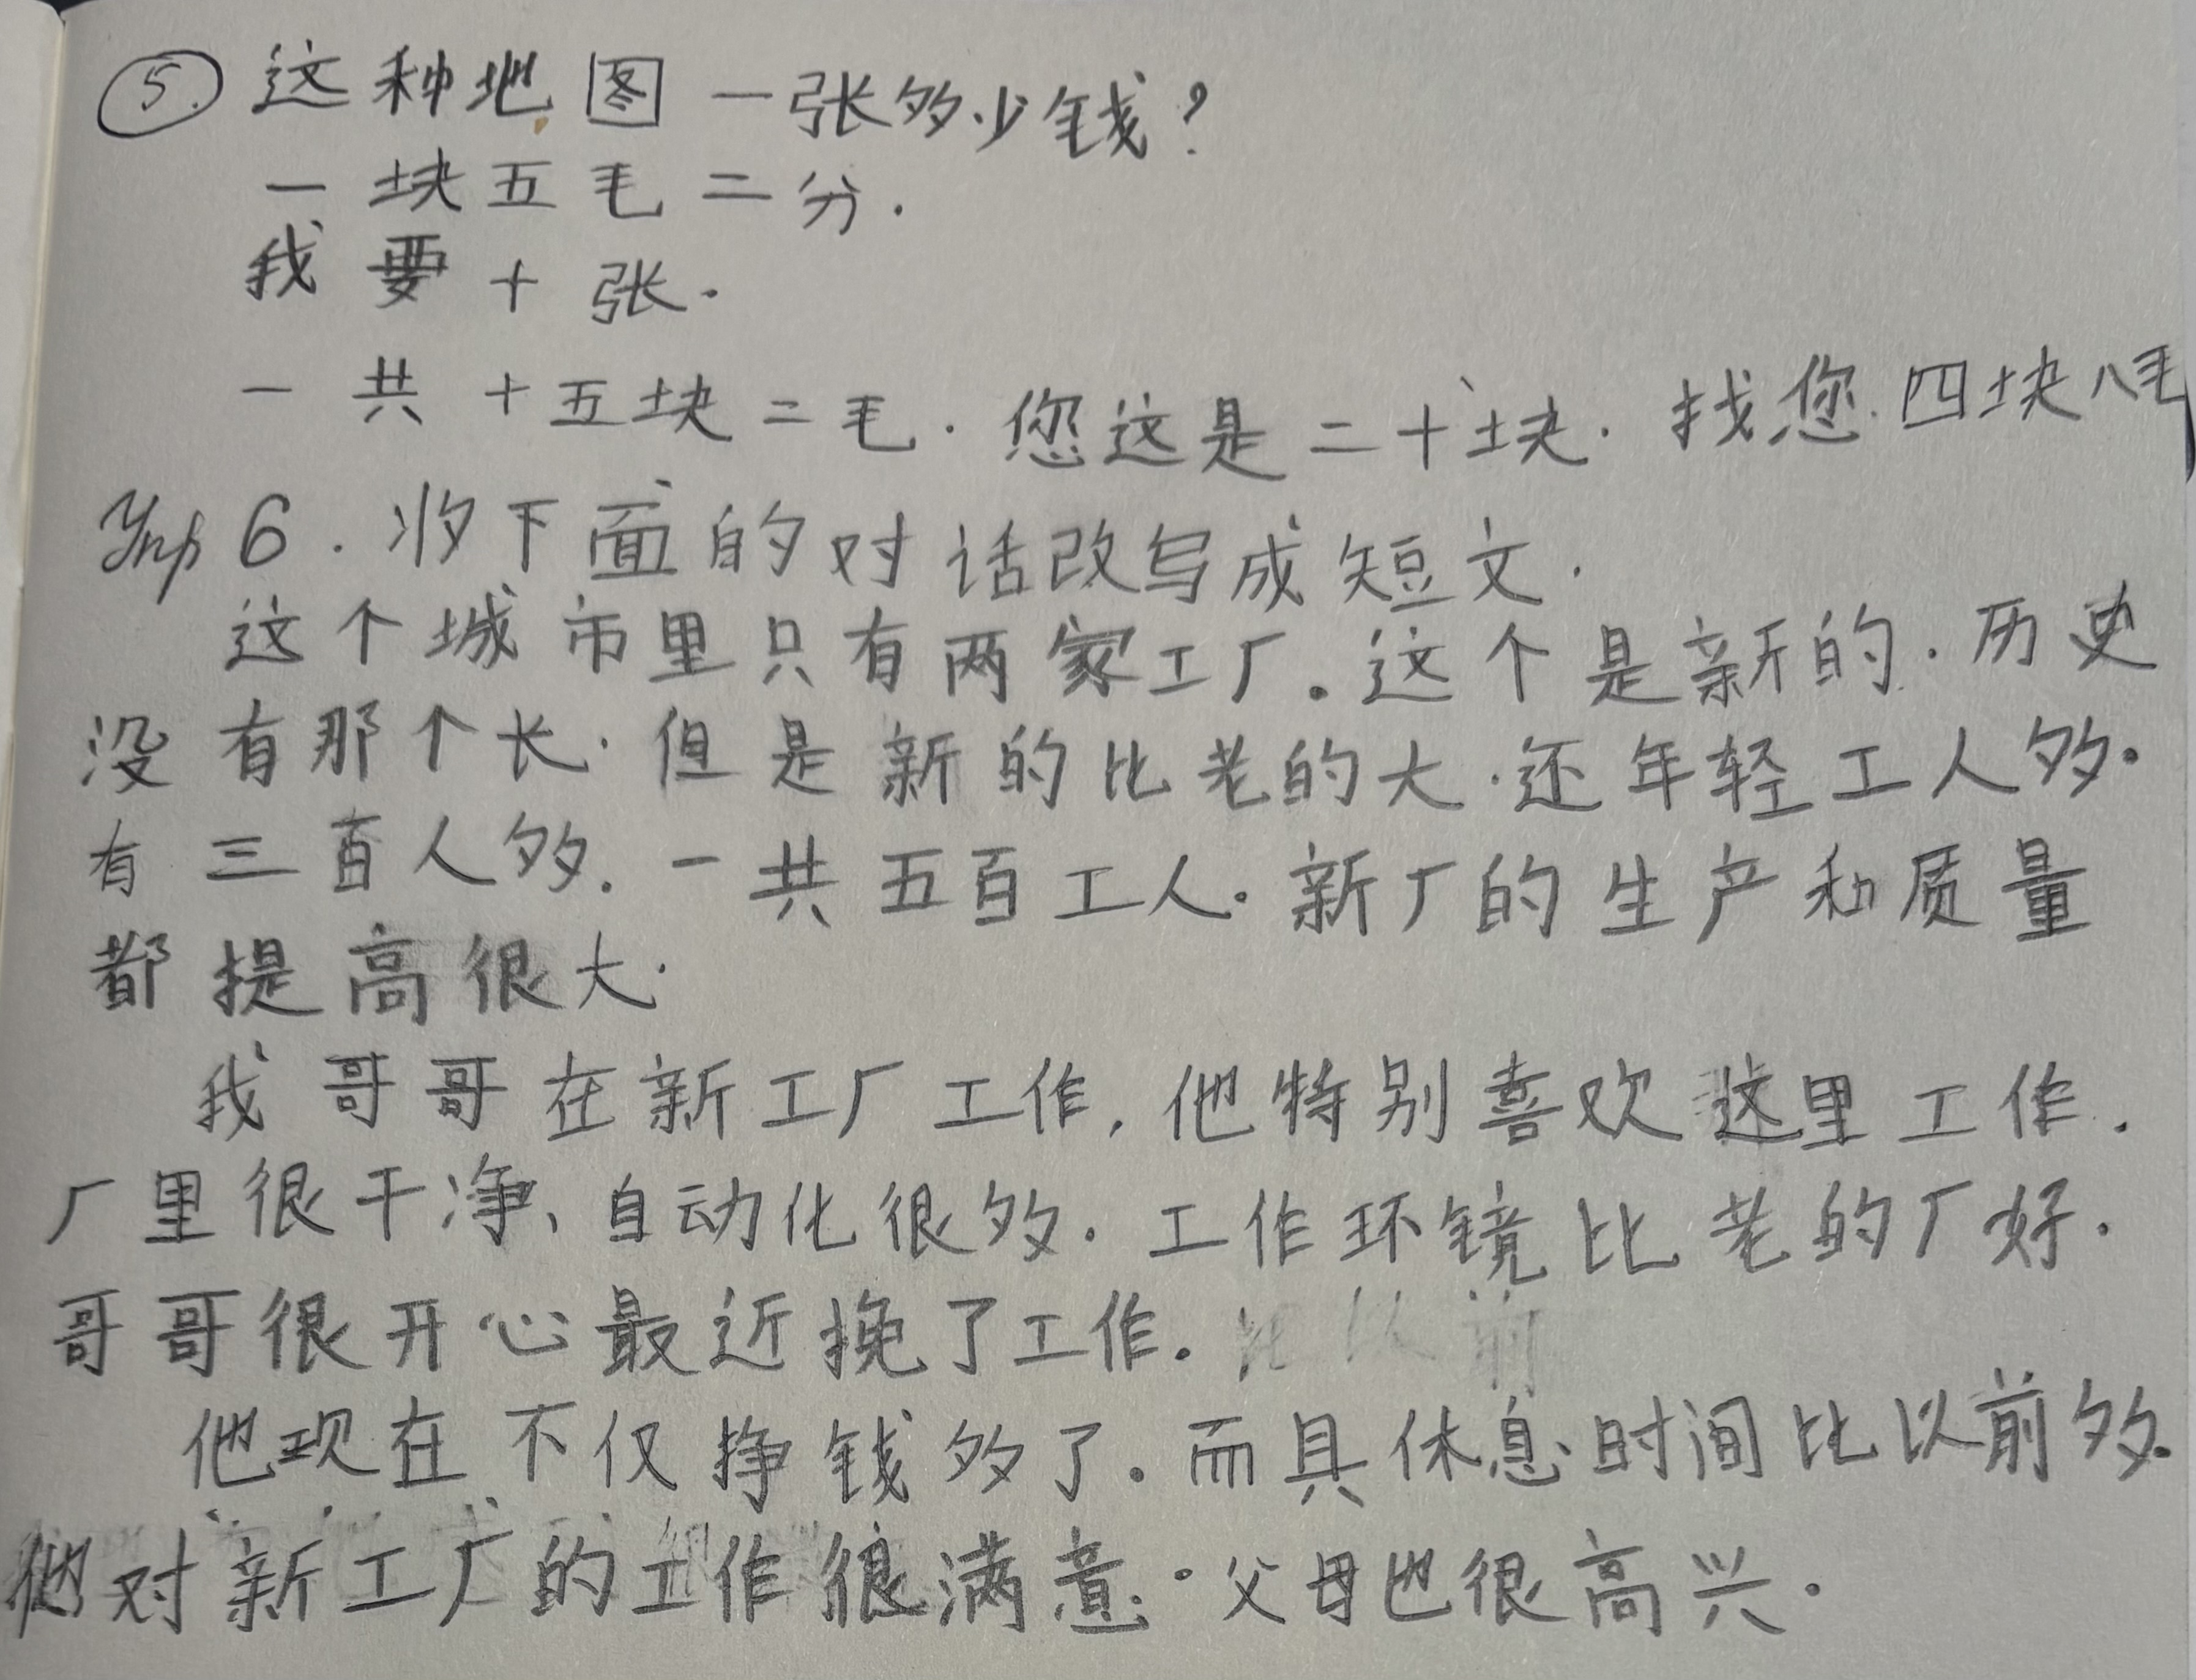 ⑤ 这种地图一张多少钱?
一块五毛二分.
我要十张.
一共十五块二毛. 您这是二十块. 找您四块八毛
Упр 6. 将下面的对话改写成短文.
这个城市里只有两家工厂。这个是新的. 历史
没有那个长. 但是新的比老的大. 还年轻工人多.
有三百人多. 一共五百工人. 新厂的生产和质量
都提高很大.
我哥哥在新工厂工作, 他特别喜欢这里工作.
厂里很干净、自动化很多. 工作环镜比老的厂好.
哥哥很开心最近换了工作. 比以前
他现在不仅挣钱多了. 而且休息时间比以前多.
他对新工厂的工作很满意. 父母也很高兴.